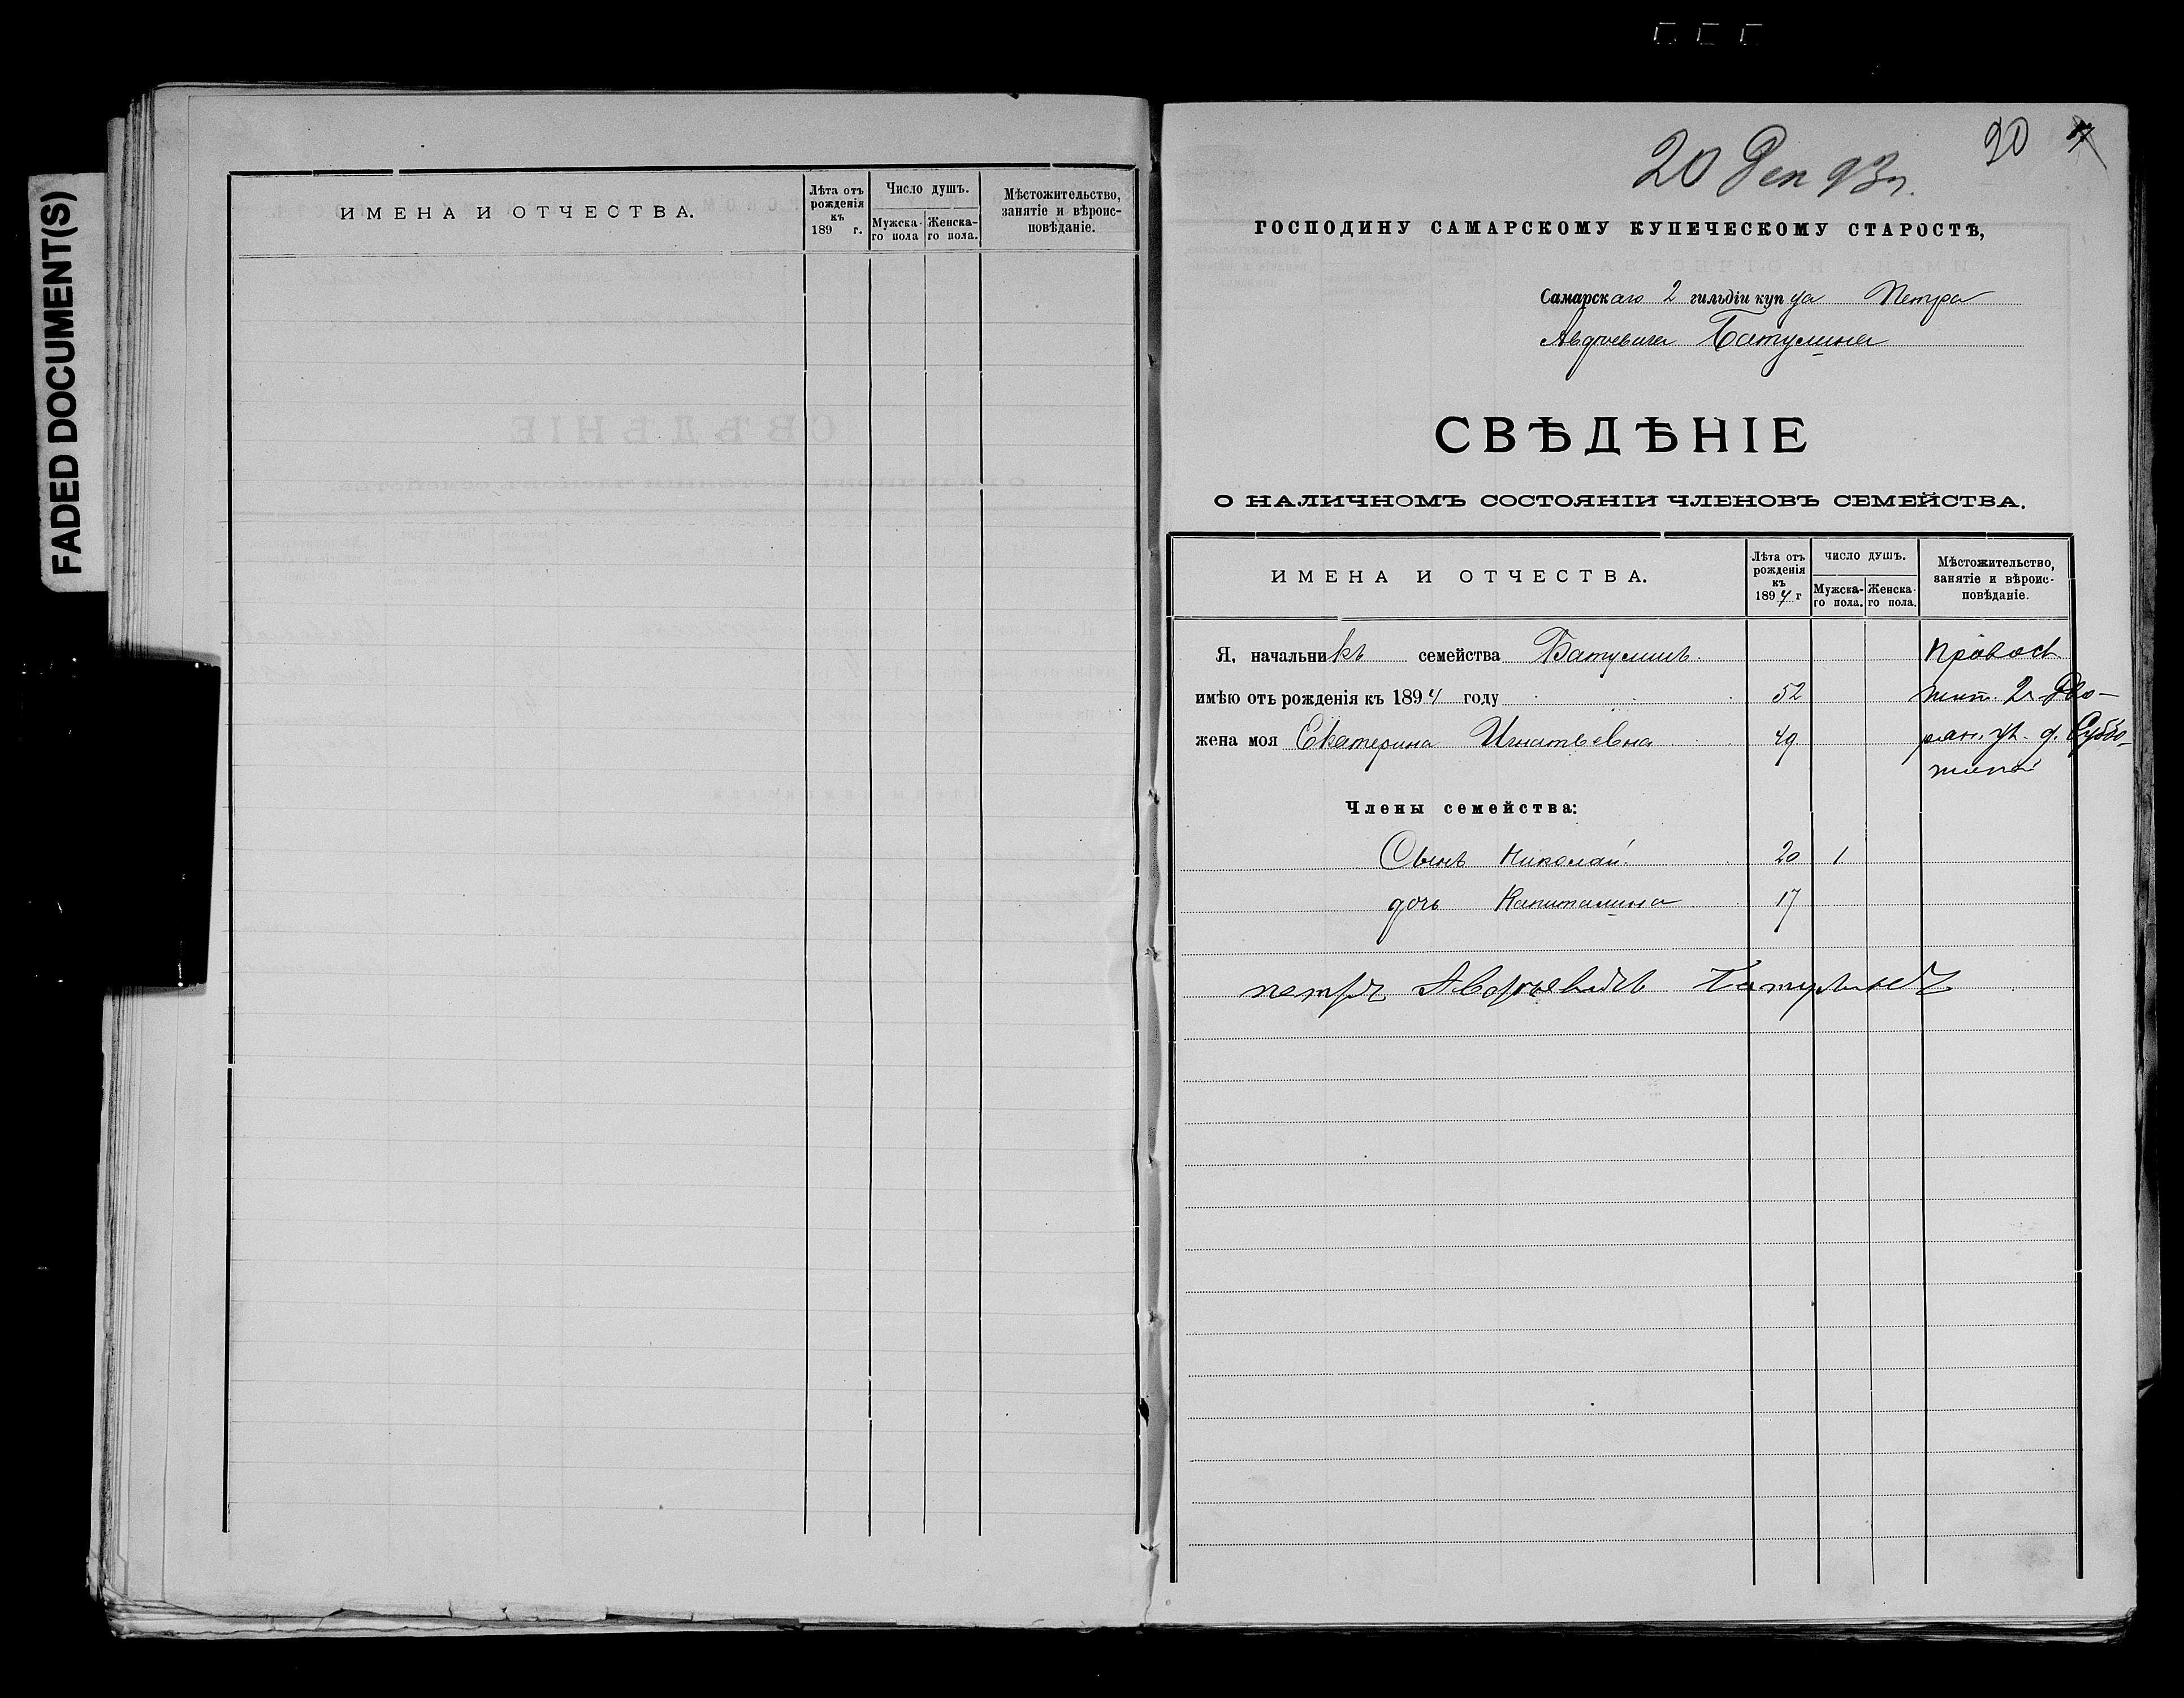 FADED DOCUMENT(S)
ИМЕНА И ОТЧЕСТВА.
Лѣта отъ рожденія къ 189 г.
Число душъ.
Мужска-го пола
Женска-го пола.
Мѣстожительство, занятіе и вѣроис-повѣданіе.
20 Дек 93 г.
20
17
ГОСПОДИНУ САМАРСКОМУ КУПЕЧЕСКОМУ СТАРОСТѢ,
Самарскаго 2 гильдіи купца Петра
Авдѣевича Батулина
СВѢДѢНІЕ
О НАЛИЧНОМЪ СОСТОЯНІИ ЧЛЕНОВЪ СЕМЕЙСТВА.
ИМЕНА И ОТЧЕСТВА.
Лѣта отъ рожденія къ 1894 г
ЧИСЛО ДУШЪ.
Мужска-го пола.
Женска-го пола.
Мѣстожительство, занятіе и вѣроис-повѣданіе.
Я, начальникъ семейства Батулинъ. Правосл.
имѣю отъ рожденія къ 1894 году 52 жит. 2 Дво-
жена моя Екатерина Игнатьевна 49 рян. ул. д. Суббо-
тиной
Члены семейства:
Сынъ Николай 20 1
дочь Капиталина 17
петръ Авдѣевичъ Батулинъ